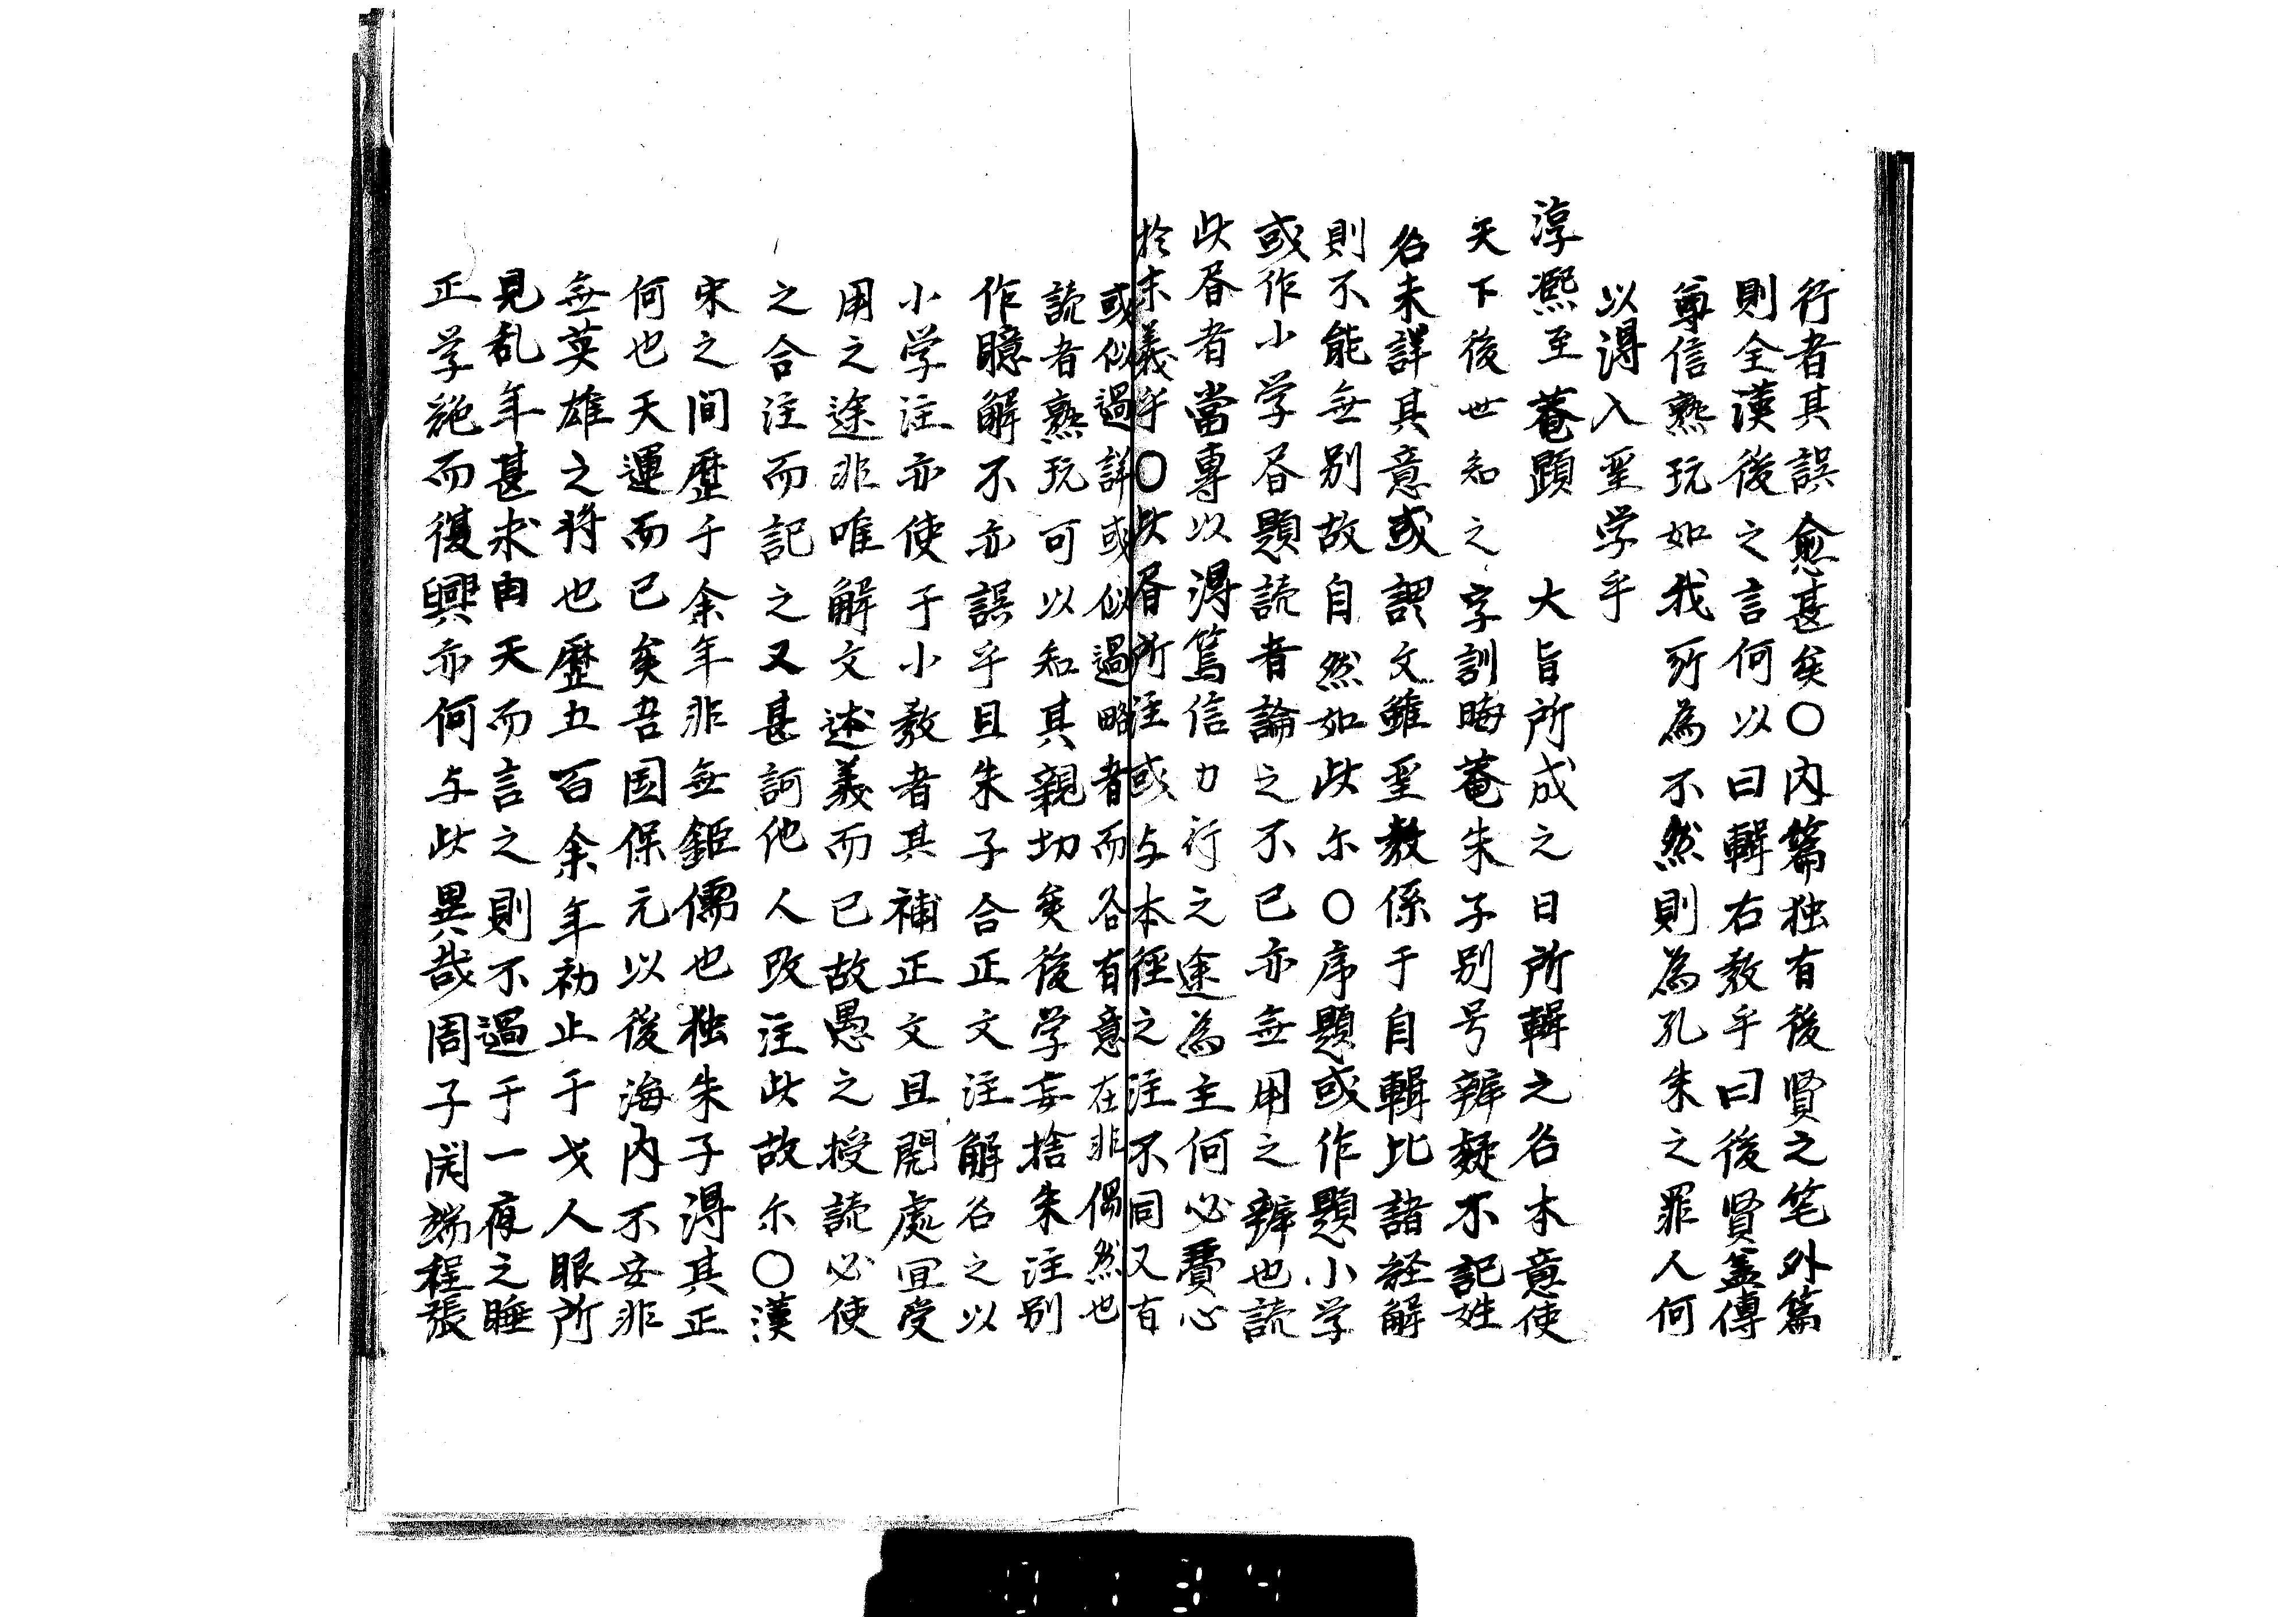 行者其誤愈甚矣〇内篇独有後賢之笔外篇
則全漢後之言何以曰輯右教乎曰後賢盖傳
尊信熟玩如我所為不然則為孔朱之罪人何
以得入聖学乎
淳熈至菴題　大旨所成之日所輯之名本意使
天下後世知之字訓晦菴朱子别号辨疑不記姓
名未詳其意或謂文雖聖教係于自輯比諸経解
則不能無别故自然如此尓〇序題或作題小学
或作小学昏題読者論之不已亦無用之辨也読
此昏者當專以得篤信力行之途為主何必費心
於末義乎〇此昏所注或与本徑之注不同又有
或似過詳或似過略者而各有意在非偶然也
読者熟玩可以知其親切矣後学妄捨朱注别
作臆解不亦誤乎且朱子合正文注解名之以
小学注亦使于小教者其補正文且開處宜受
用之途非唯解文述義而已故愚之授読必使
之合注而記之又甚訶他人改注此故尓〇漢
宋之間歷于余年非無鉅儒也独朱子得其正
何也天運而已矣吾国保元以後海内不安非
無英雄之将也歷五百余年初止于戈人眼所
見乱年甚求由天而言之則不過于一夜之睡
正学絶而復興亦何与此異哉周子開端程張